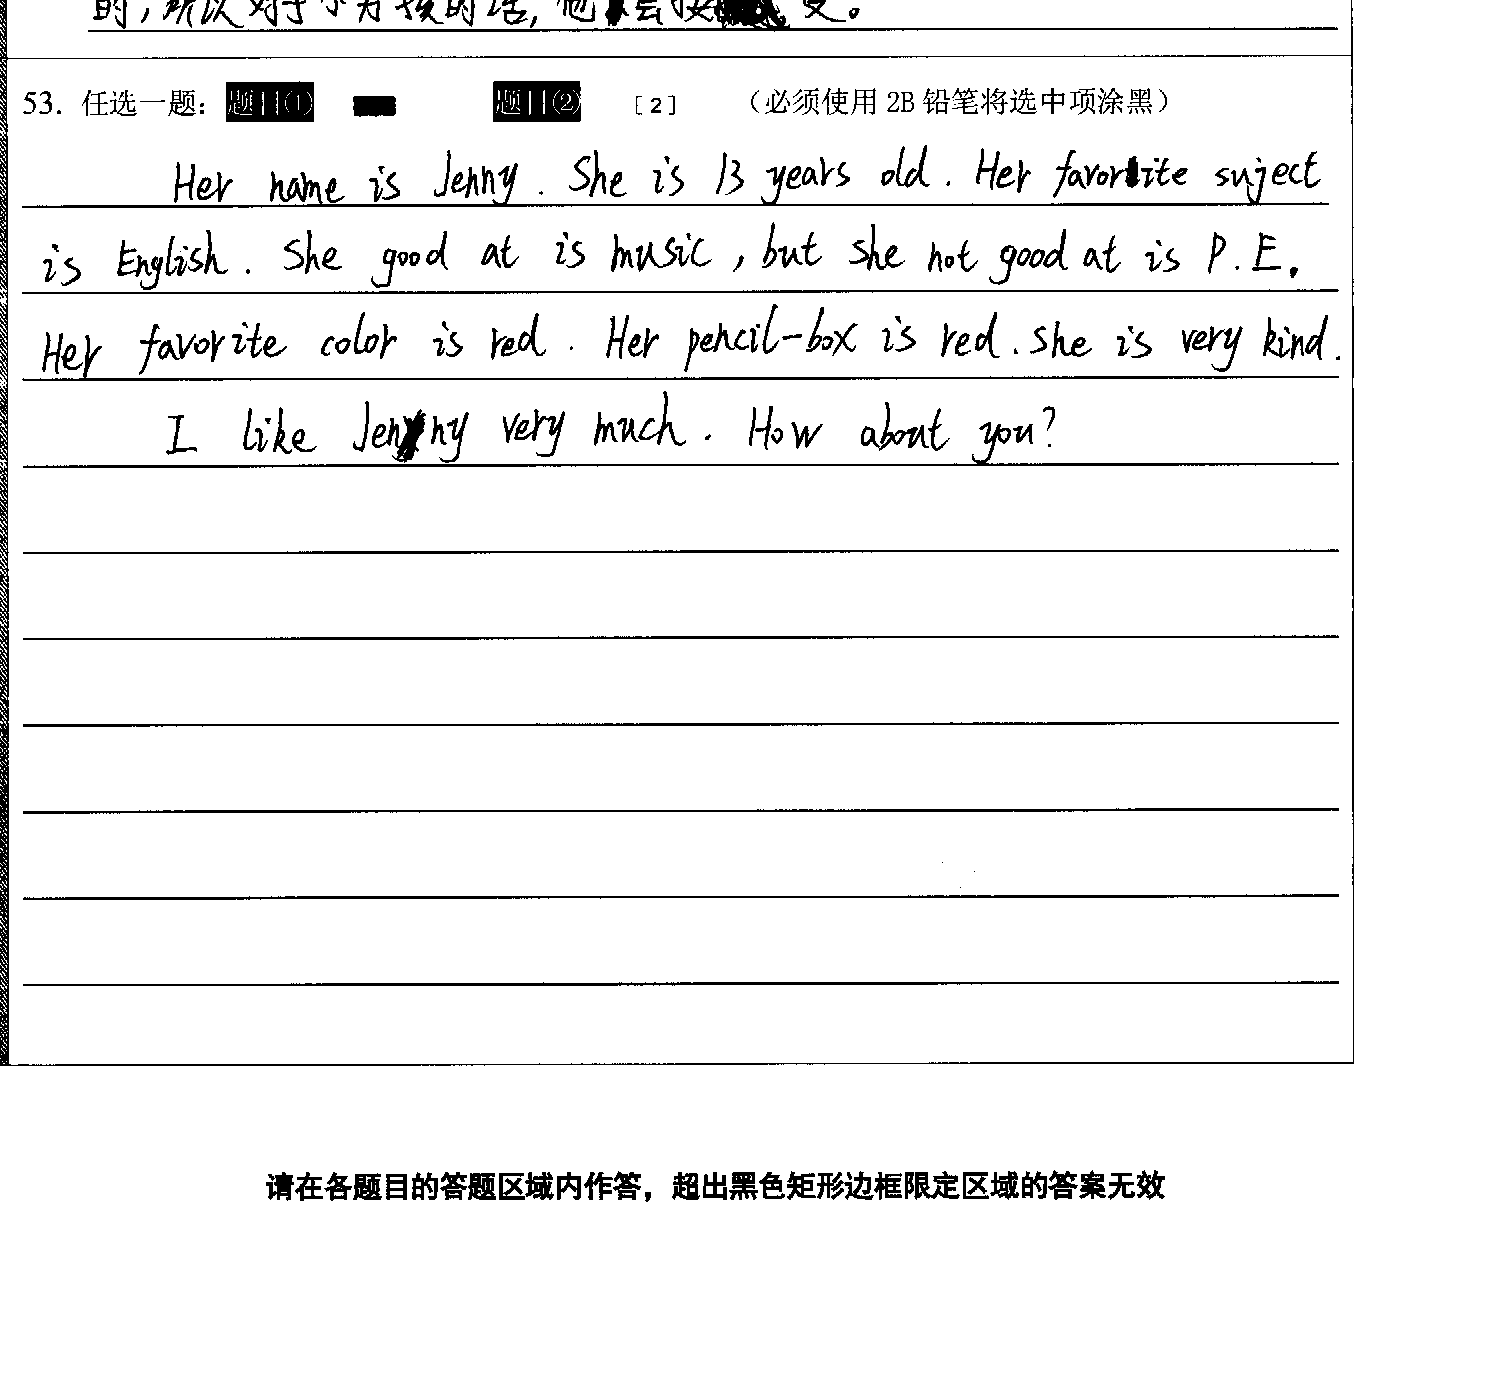 的，所以对于小方孩的话，他会接受。
53. 任选一题： 题目① 题目② [2] （必须使用 2B 铅笔将选中项涂黑）
Her name is Jenny. She is 13 years old. Her favorite suject
is English. She good at is music, but she not good at is P.E.
Her favorite color is red. Her pencil-box is red. She is very kind.
I like Jenny very much. How about you?
请在各题目的答题区域内作答，超出黑色矩形边框限定区域的答案无效